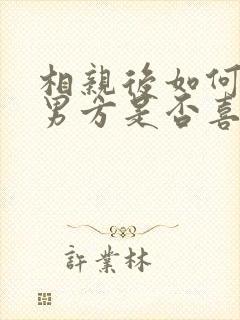 相親後如何
男方是否喜
許業林